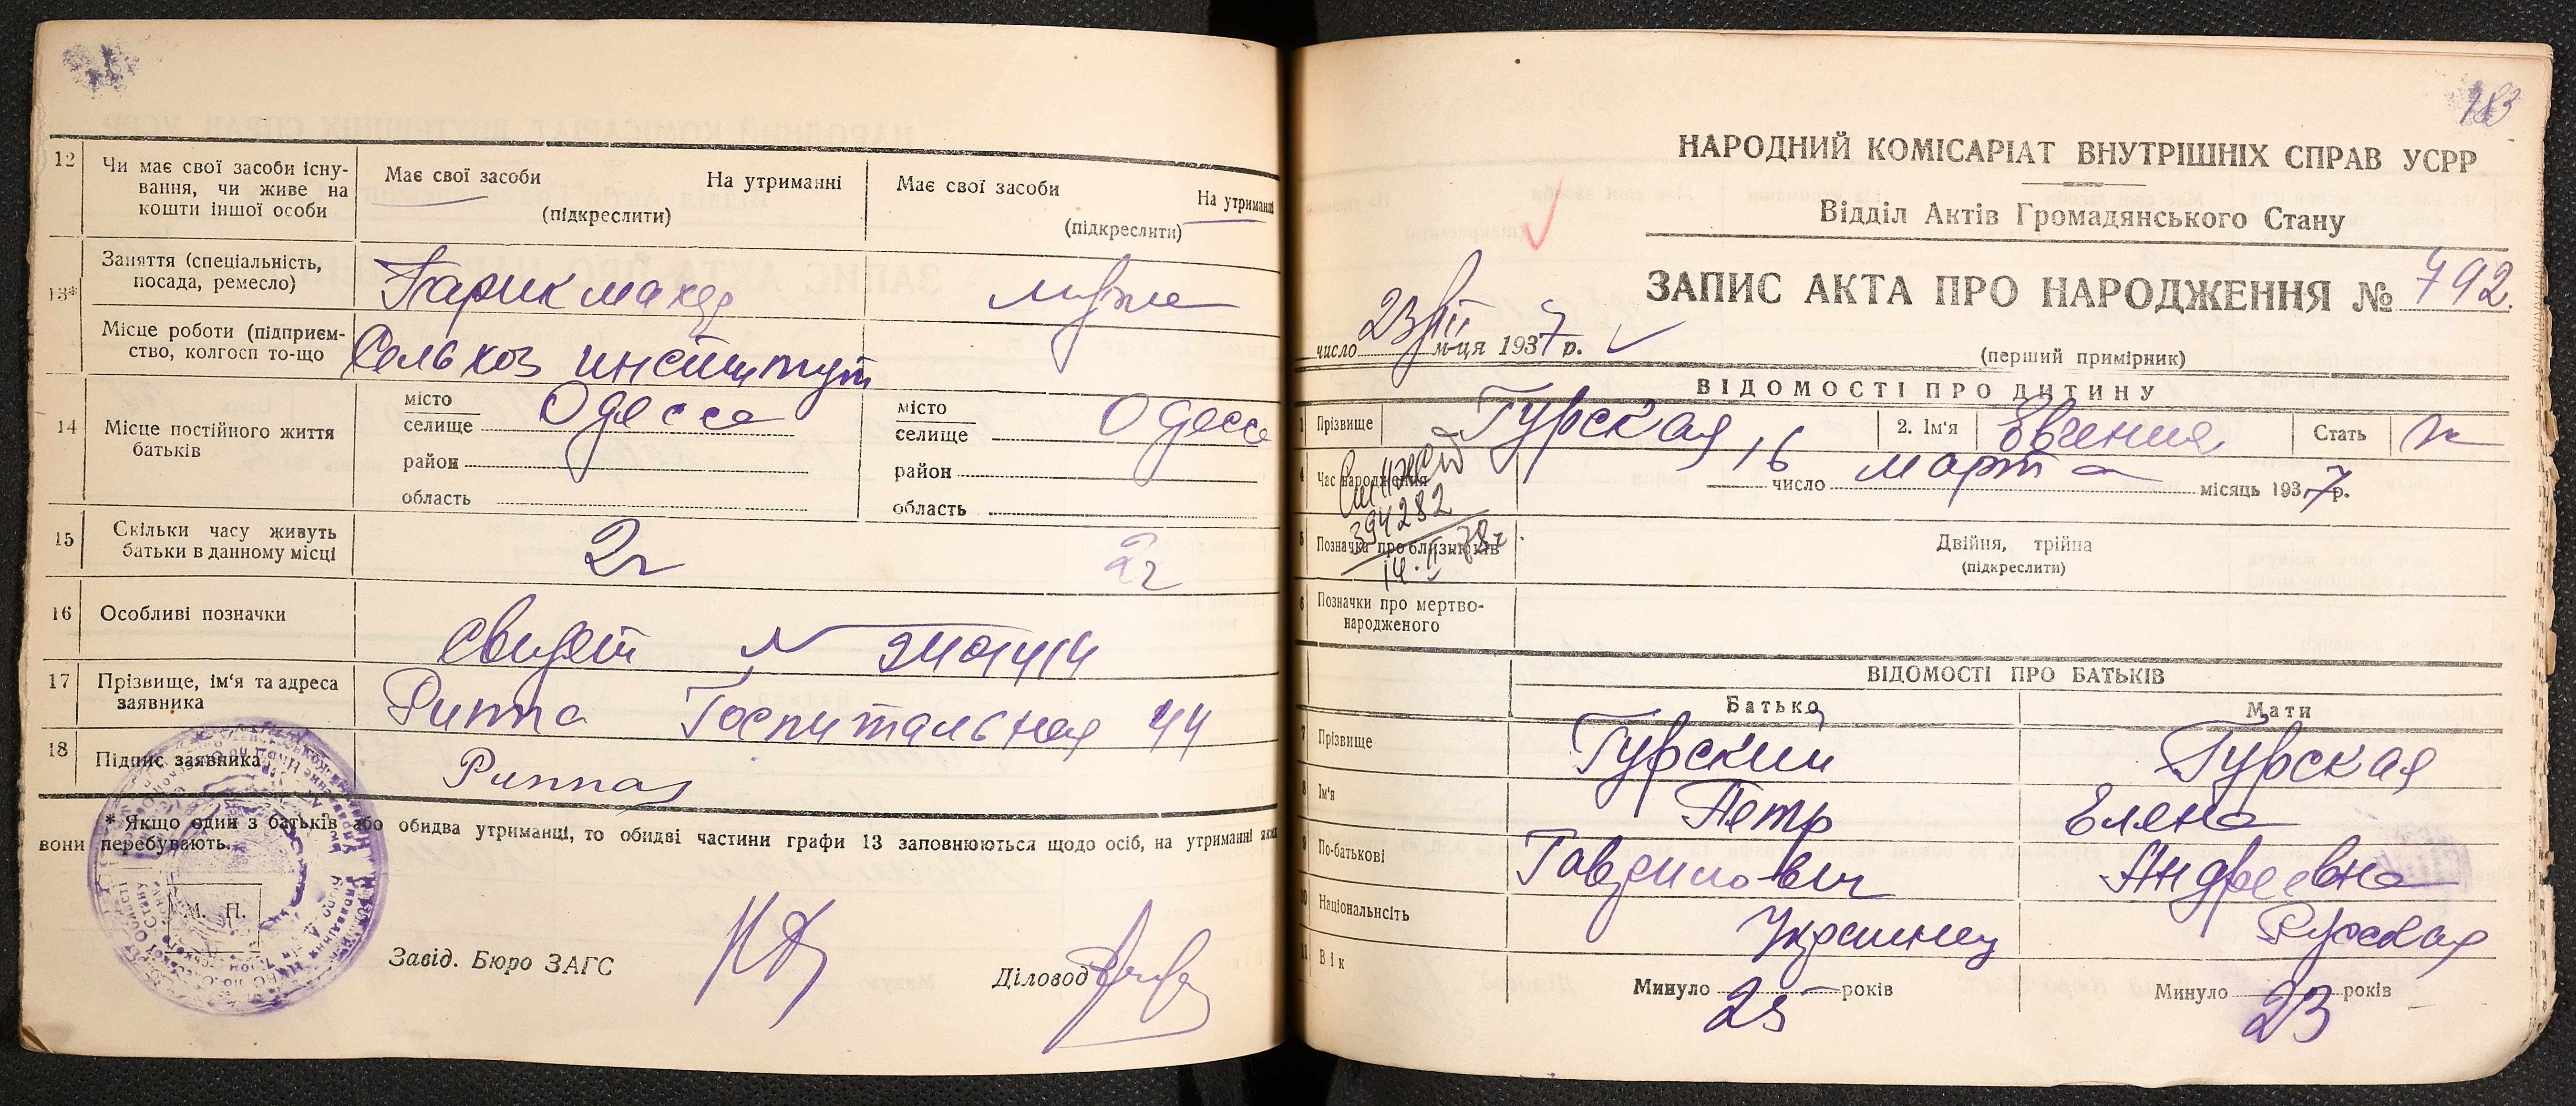 12 Чи має свої засоби існу-
вання, чи живе на
кошти іншої особи
Має свої засоби На утриманні
(підкреслити)
Має свої засоби На утриманні
(підкреслити)
13* Заняття (спеціальність,
посада, ремесло)
Парикмахер
Місце роботи (підприєм-
ство, колгосп то-що
Сельхоз институт
14 Місце постійного життя
батьків
місто
селище Одесса
район
область
місто
селище Одесса
район
область
15 Скільки часу живуть
батьки в данному місці
2г 2г
16 Особливі позначки
свидет №
17 Прізвище, ім'я та адреса
заявника
Риппа Госпитальная 44
18 Підпис заявника
Риппа
* Якщо один з батьків або обидва утриманці, то обидві частини графи 13 заповнюються щодо осіб, на утриманні яких
вони перебувають.
М. П.
Завід. Бюро ЗАГС Діловод
183
НАРОДНИЙ КОМІСАРІАТ ВНУТРІШНІХ СПРАВ УСРР
Відділ Актів Громадянського Стану
ЗАПИС АКТА ПРО НАРОДЖЕННЯ № 792.
число 23 III м-ця 1937 р.
(перший примірник)
ВІДОМОСТІ ПРО ДИТИНУ
1 Прізвище Гурская 2. Ім'я Евгения Стать ж
4 Час народження 16 число март місяць 1937 р.
394282
14.II 78г
5 Позначка про близнюків
Двійня, трійна
(підкреслити)
6 Позначки про мертво-
народженого
ВІДОМОСТІ ПРО БАТЬКІВ
Батько Мати
7 Прізвище Гурский Гурская
8 Ім'я Петр Елена
9 По-батькові Гаврилович Андреевна
10 Національнсіть Украинец Русская
11 Вік
Минуло 25 років Минуло 23 років